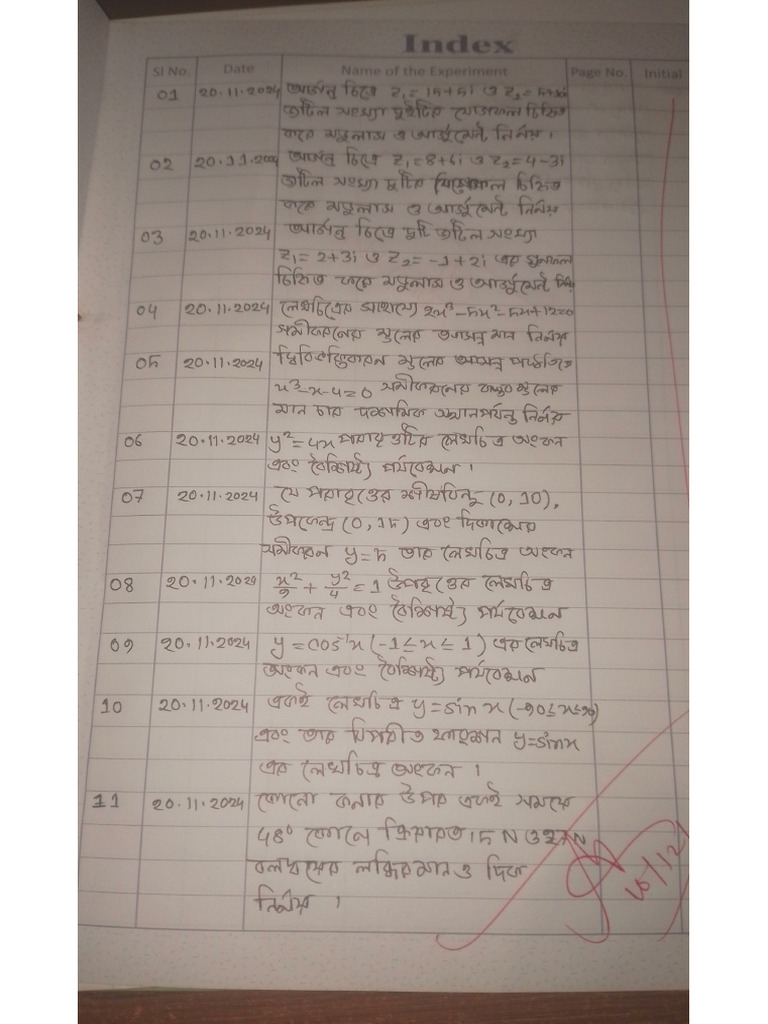 Index
Sl No. Date Name of the Experiment Page No. Initial
01 20.11.2024 আর্গন্ড চিত্রে Z₁ = 15+5i ও
জটিল সংখ্যা দুইটির যোগফল চিহ্নিত
করে মডুলাস ও আর্গুমেন্ট নির্নয়।
02 20.11.2024 আর্গন্ড চিত্রে Z₁=8+4i ও Z₂=4-3i
জটিল সংখ্যা দুটির বিয়োগফল চিহ্নিত
করে মডুলাস ও আর্গুমেন্ট নির্নয়
03 20.11.2024 আর্গন্ড চিত্রে দুটি জটিল সংখ্যা
Z₁ = 2+3i ও Z₂ = -1+2i এর গুনফল
চিহ্নিত করে মডুলাস ও আর্গুমেন্ট
04 20.11.2024 লেখচিত্রের সাহায্যে 2x³-5x²-5x+12=0
সমীকরনের মুলের আসন্ন মান নির্নয়
05 20.11.2024 দ্বিবিভক্তিকরন মুলের আসন্ন পদ্ধতিতে
x³-x-4=0 সমীকরনের বাস্তব মুলের
মান চার দশমিক স্থান পর্যন্ত নির্নয়
06 20.11.2024 y²=4x পরাবৃত্তটির লেখচিত্র অংকন
এবং বৈশিষ্ট্য পর্যবেক্ষন।
07 20.11.2024 যে পরাবৃত্তের শীর্ষবিন্দু (0, 10),
উপকেন্দ্র (0, 15) এবং দিকাক্ষের
সমীকরন y=5 তার লেখচিত্র অংকন
08 20.11.2024 x²/9 + y²/4 = 1 উপবৃত্তের লেখচিত্র
অংকন এবং বৈশিষ্ট্য পর্যবেক্ষন
09 20.11.2024 y = cos⁻¹x (-1 ≤ x ≤ 1) এর লেখচিত্র
অংকন এবং বৈশিষ্ট্য পর্যবেক্ষন
10 20.11.2024 একই লেখচিত্র y=sin x (-90≤x≤90)
এবং তার বিপরীত ফাংশন y=sinx
এর লেখচিত্র অংকন।
11 20.11.2024 কোনো কনার উপর একই সময়ে
48° কোনে ক্রিয়ারত 15 N ও 27N
বলদ্বয়ের লব্ধির মান ও দিক
নির্নয়।